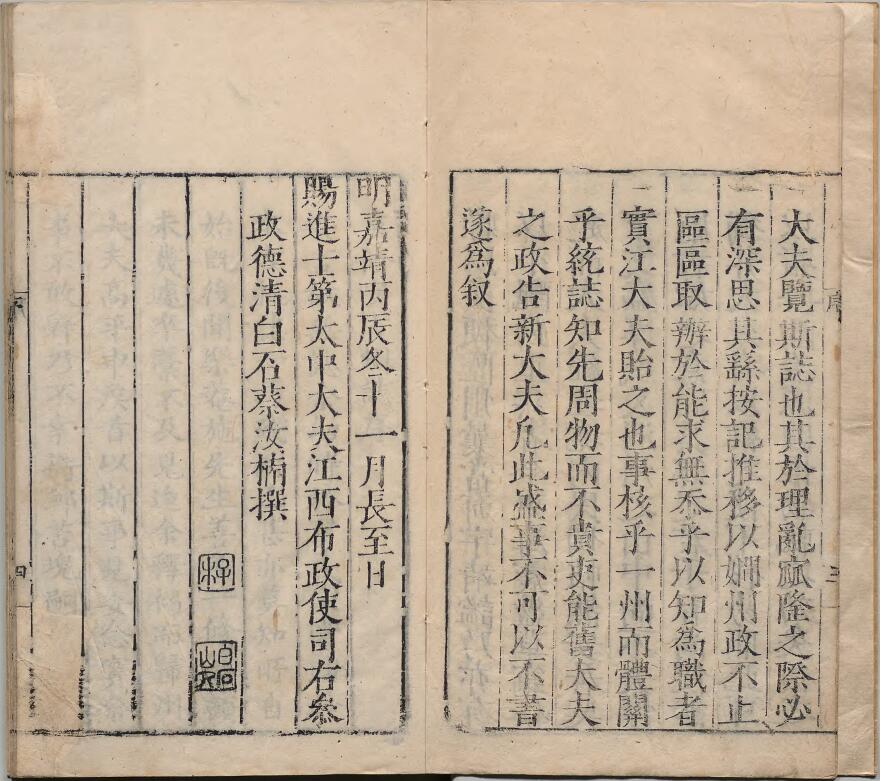 大夫覽斯誌也其於理亂窊隆之際必
有深思其繇按記推移以嫺州政不止
區區取辦於能求無忝乎以知爲職者
實江大夫貽之也事核乎一州而體關
乎統誌知先周物而不貴吏能舊大夫
之政告新大夫凡此盛事不可以不書
遂爲叙
序
三
明嘉靖丙辰冬十一月長至日
賜進士第太中大夫江西布政使司右叅
政德清白石蔡汝楠撰
四